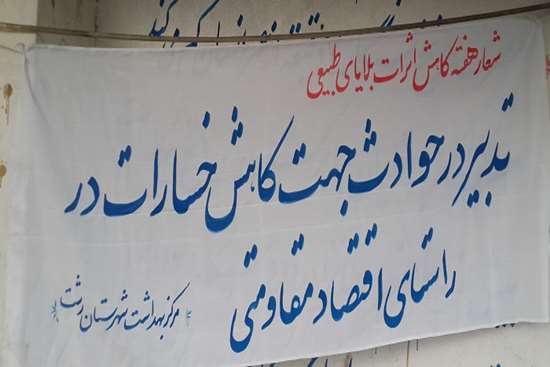 شعار هفته کاهش اثرات بلایای طبیعی
تدبیر در حوادث جهت کاهش خسارات در
راستای اقتصاد مقاومتی
مرکز بهداشت شهرستان رشت